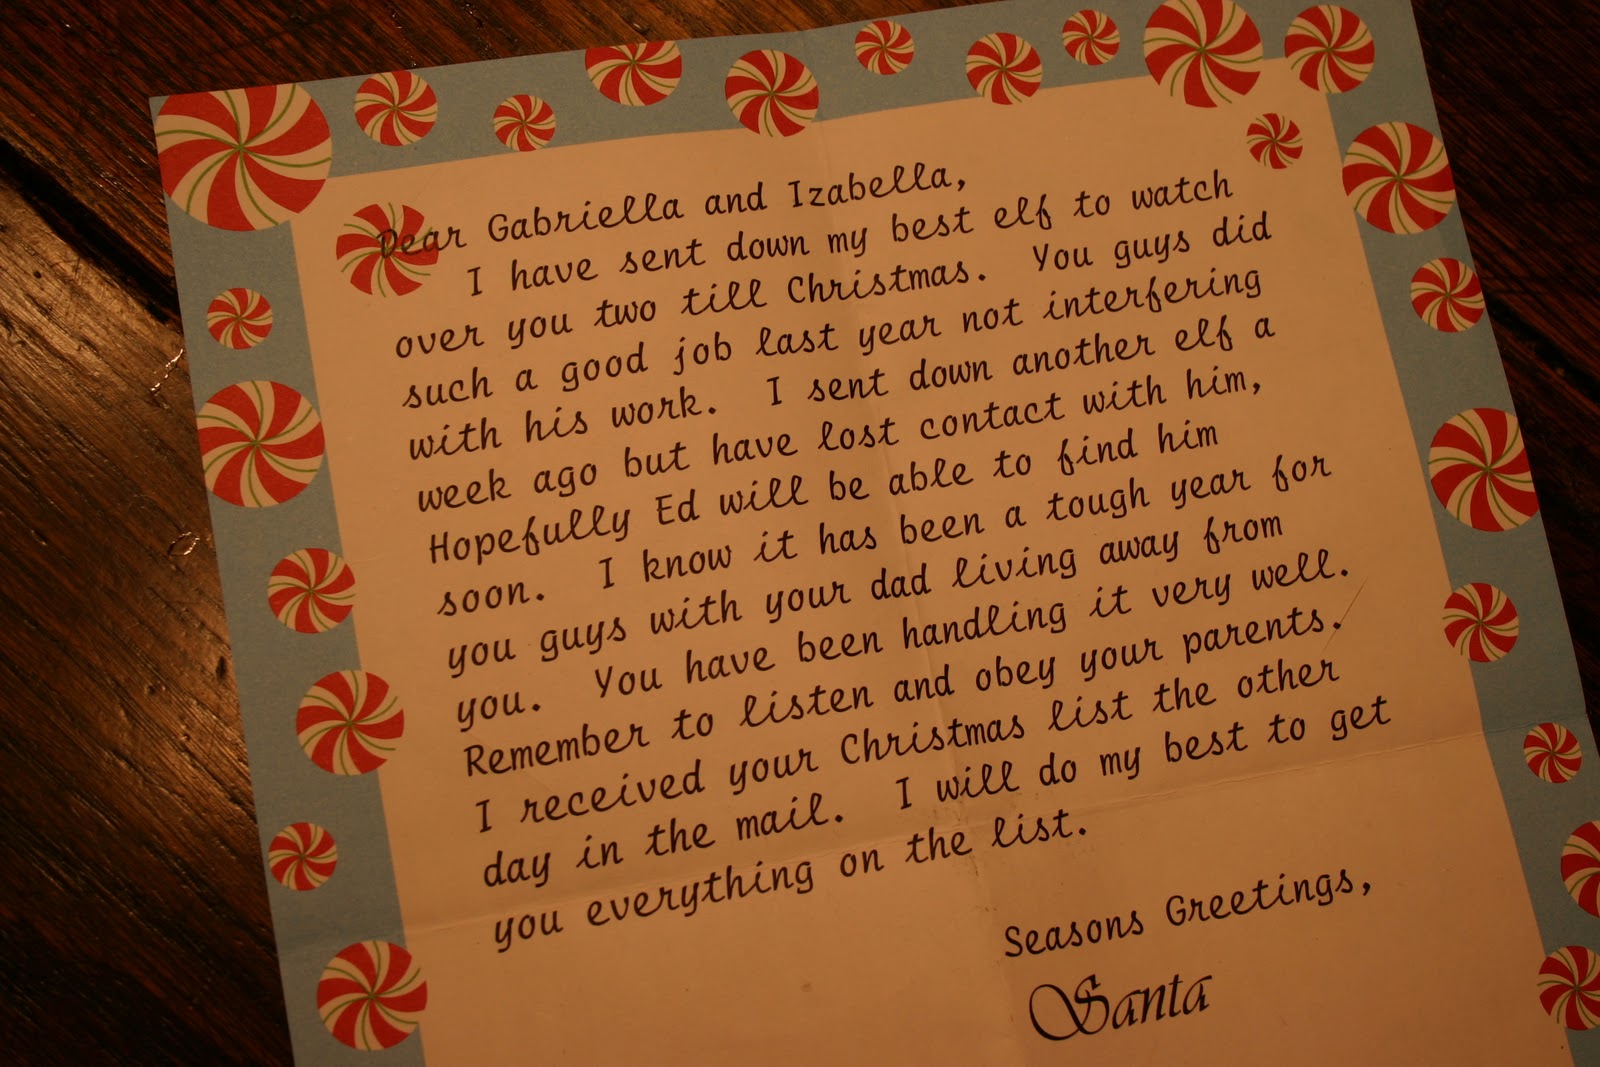 Dear Gabriella and Izabella,
I have sent down my best elf to watch
over you two till Christmas. You guys did
such a good job last year not interfering
with his work. I sent down another elf a
week ago but have lost contact with him,
Hopefully Ed will be able to find him
soon. I know it has been a tough year for
you guys with your dad living away from
you. You have been handling it very well.
Remember to listen and obey your parents.
I received your Christmas list the other
day in the mail. I will do my best to get
you everything on the list.
Seasons Greetings,
Santa